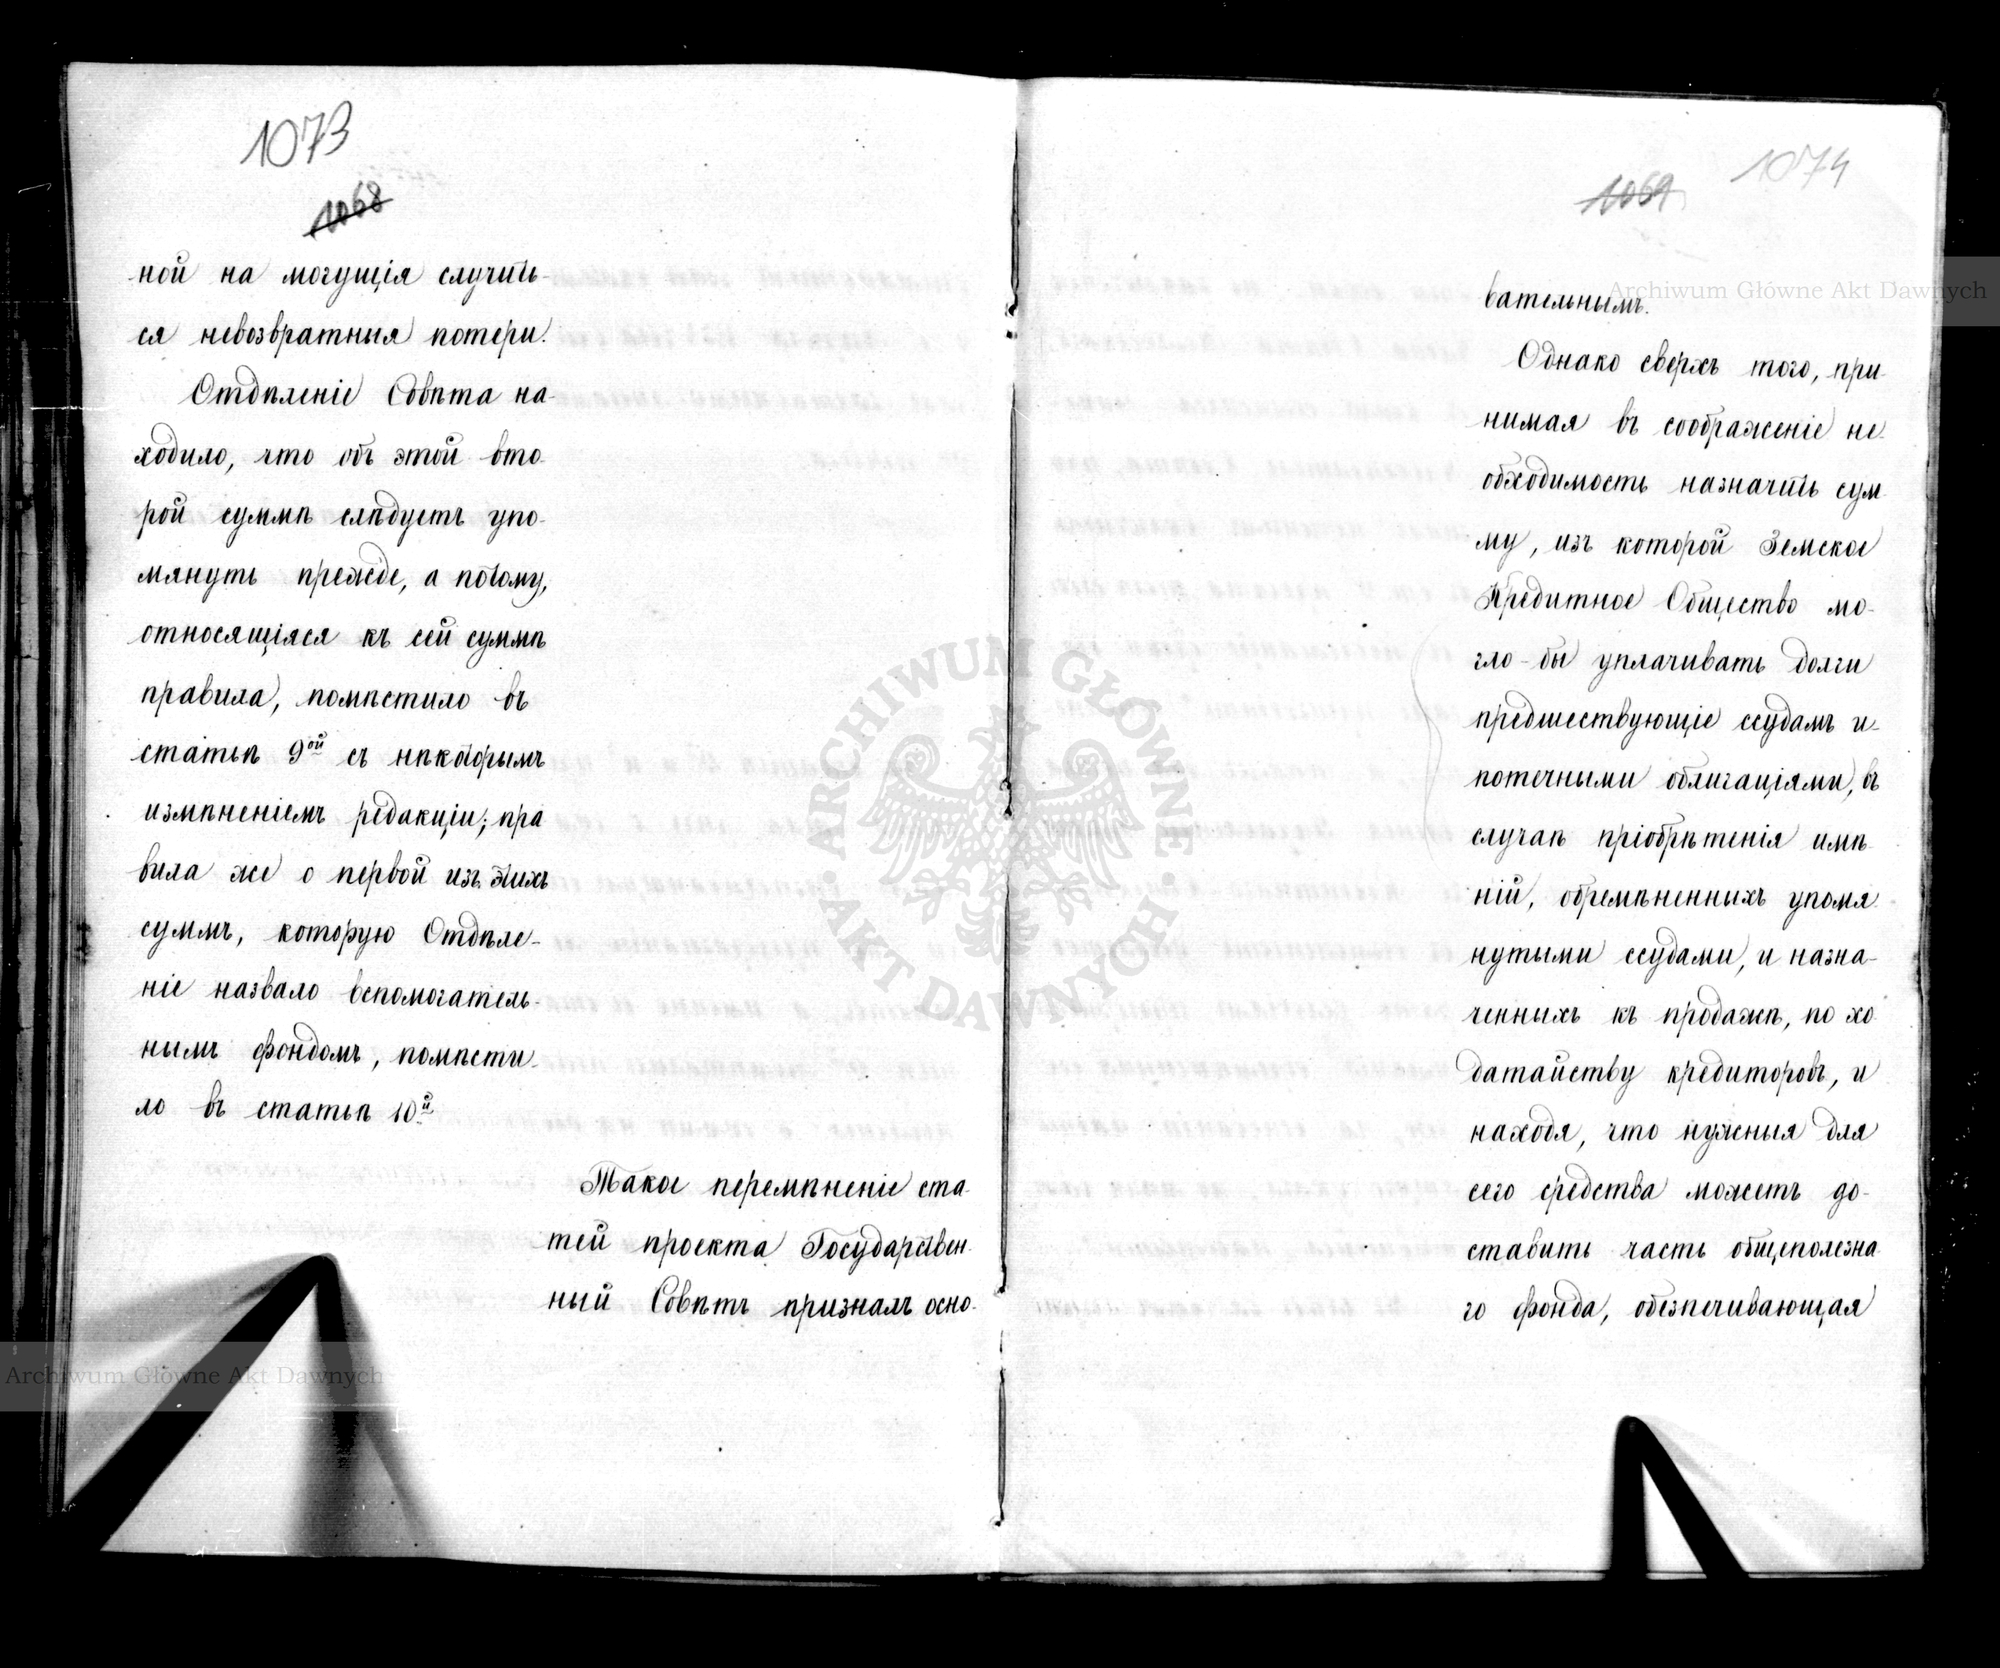 1073
1068
ной на могущія случить-
ся невозвратныя потери.
Отдѣленіе Совѣта на-
ходило, что объ этой вто-
рой суммѣ слѣдуетъ упо-
мянуть прежде, а потому,
относящіяся къ сей суммѣ
правила, помѣстило въ
статьѣ 9ой съ нѣкоторымъ
измѣненіемъ редакціи; пра
вила же о первой изъ этихъ
суммъ, которую Отдѣле-
ніе назвало вспомогатель-
нымъ фондомъ, помѣсти-
ло въ статьѣ 10й
Такое перемѣненіе ста-
тей проекта Государствен-
ный Совѣтъ призналъ осно-
1074
1069
вательнымъ.
Однако сверхъ того, при-
нимая въ соображеніе не-
обходимость назначить сум-
му, изъ которой Земское
Кредитное Общество мо-
гло-бы уплачивать долги
предшествующіе ссудамъ и-
потечными облигаціями, въ
случаѣ пріобрѣтенія имѣ-
ній, обремѣненныхъ упомя-
нутыми ссудами, и назна-
ченныхъ къ продажѣ, по хо
датайству кредиторовъ, и
находя, что нужныя для
сего средства можетъ до-
ставить часть общеполезна-
го фонда, обезпечивающая
Archiwum Główne Akt Dawnych
Archiwum Główne Akt Dawnych
ARCHIWUM GŁÓWNE
AKT DAWNYCH